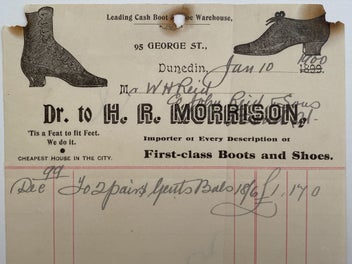 Leading Cash Boot & Shoe Warehouse,
95 GEORGE ST.,
Dunedin, Jan 10 1900
1899.
Mr W H Reid
C/o John Reid & Sons
Dr. to H. R. MORRISON,
'Tis a Feat to fit Feet.
We do it.
CHEAPEST HOUSE IN THE CITY.
Importer of Every Description of
First-class Boots and Shoes.
99
Dec To 2 pairs Gents Bals 18/6 £1. 17 0